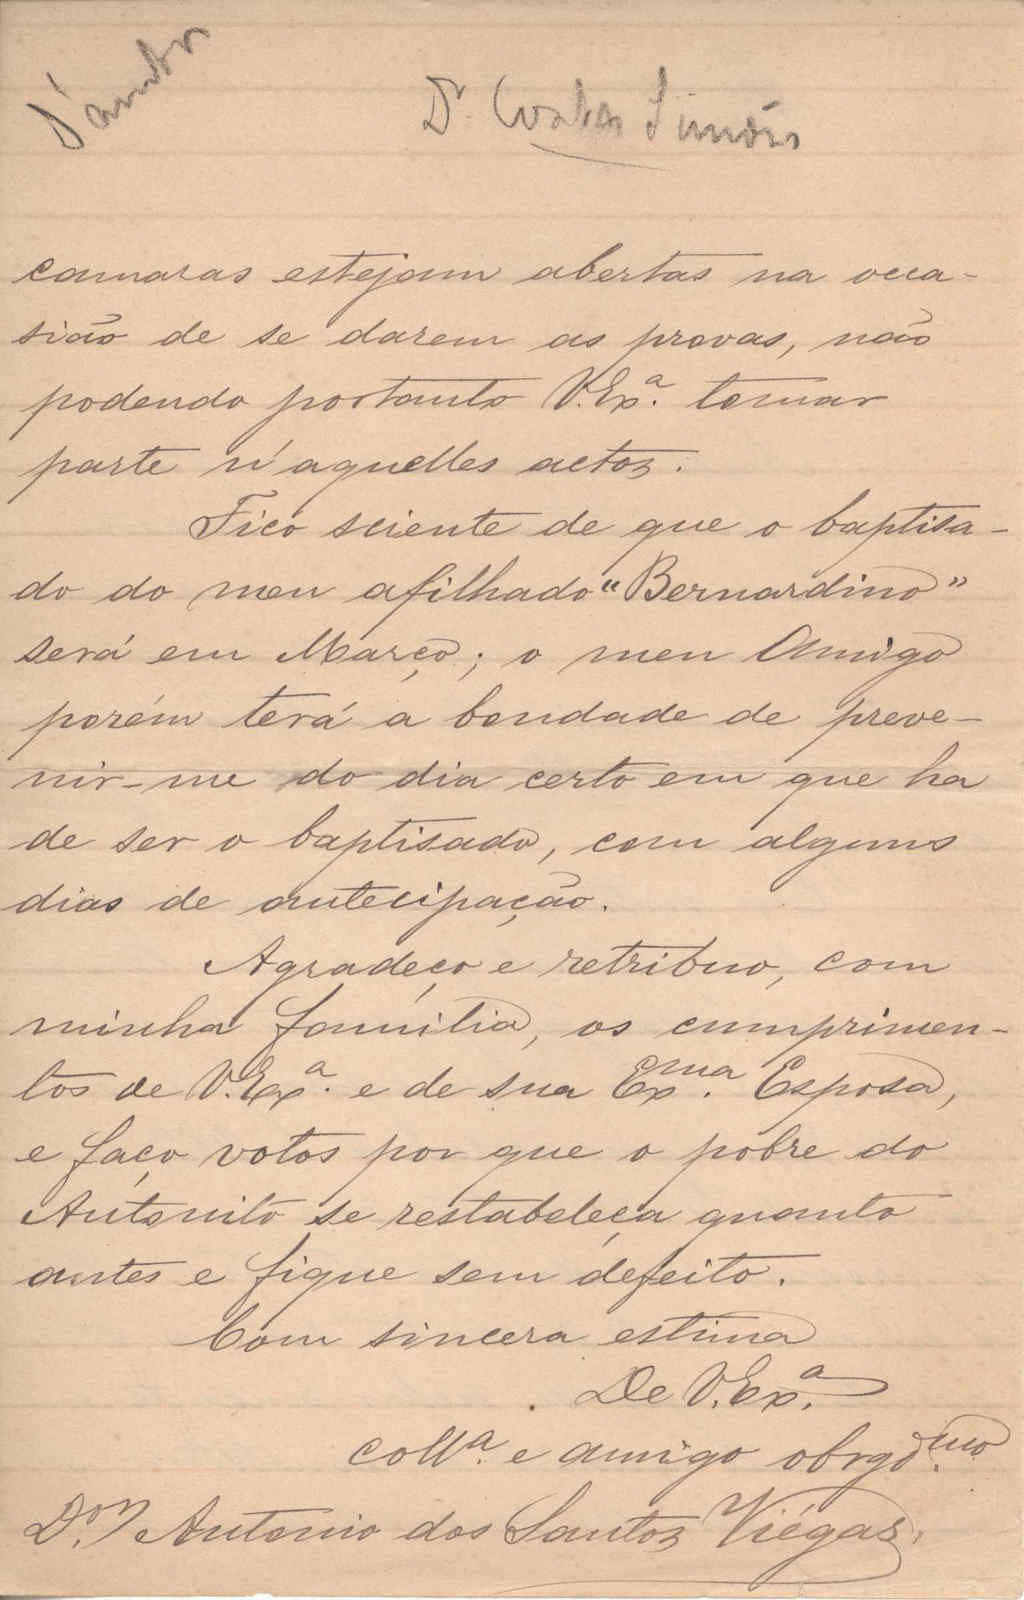 Dr. Costa Simões
camaras estejam abertas na occa-
sião de se darem as provas, não
podendo portanto V. Exª. tomar
parte n'aquelles actos.
Fico sciente de que o baptisa-
do do meu afilhado "Bernardino"
será em Março; o meu Amigo
porém terá a bondade de preve-
nir-me do dia certo em que ha
de ser o baptisado, com alguns
dias de antecipação.
Agradeço e retribuo, com
minha família, os cumprimen-
tos de V. Exª. e de sua Exma. Esposa,
e faço votos por que o pobre do
Antonito se restabeleça quanto
antes e fique sem defeito.
Com sincera estima
De V. Exª.
collª. e amigo obrgdmo.
Dor Antonio dos Santos Viégas.